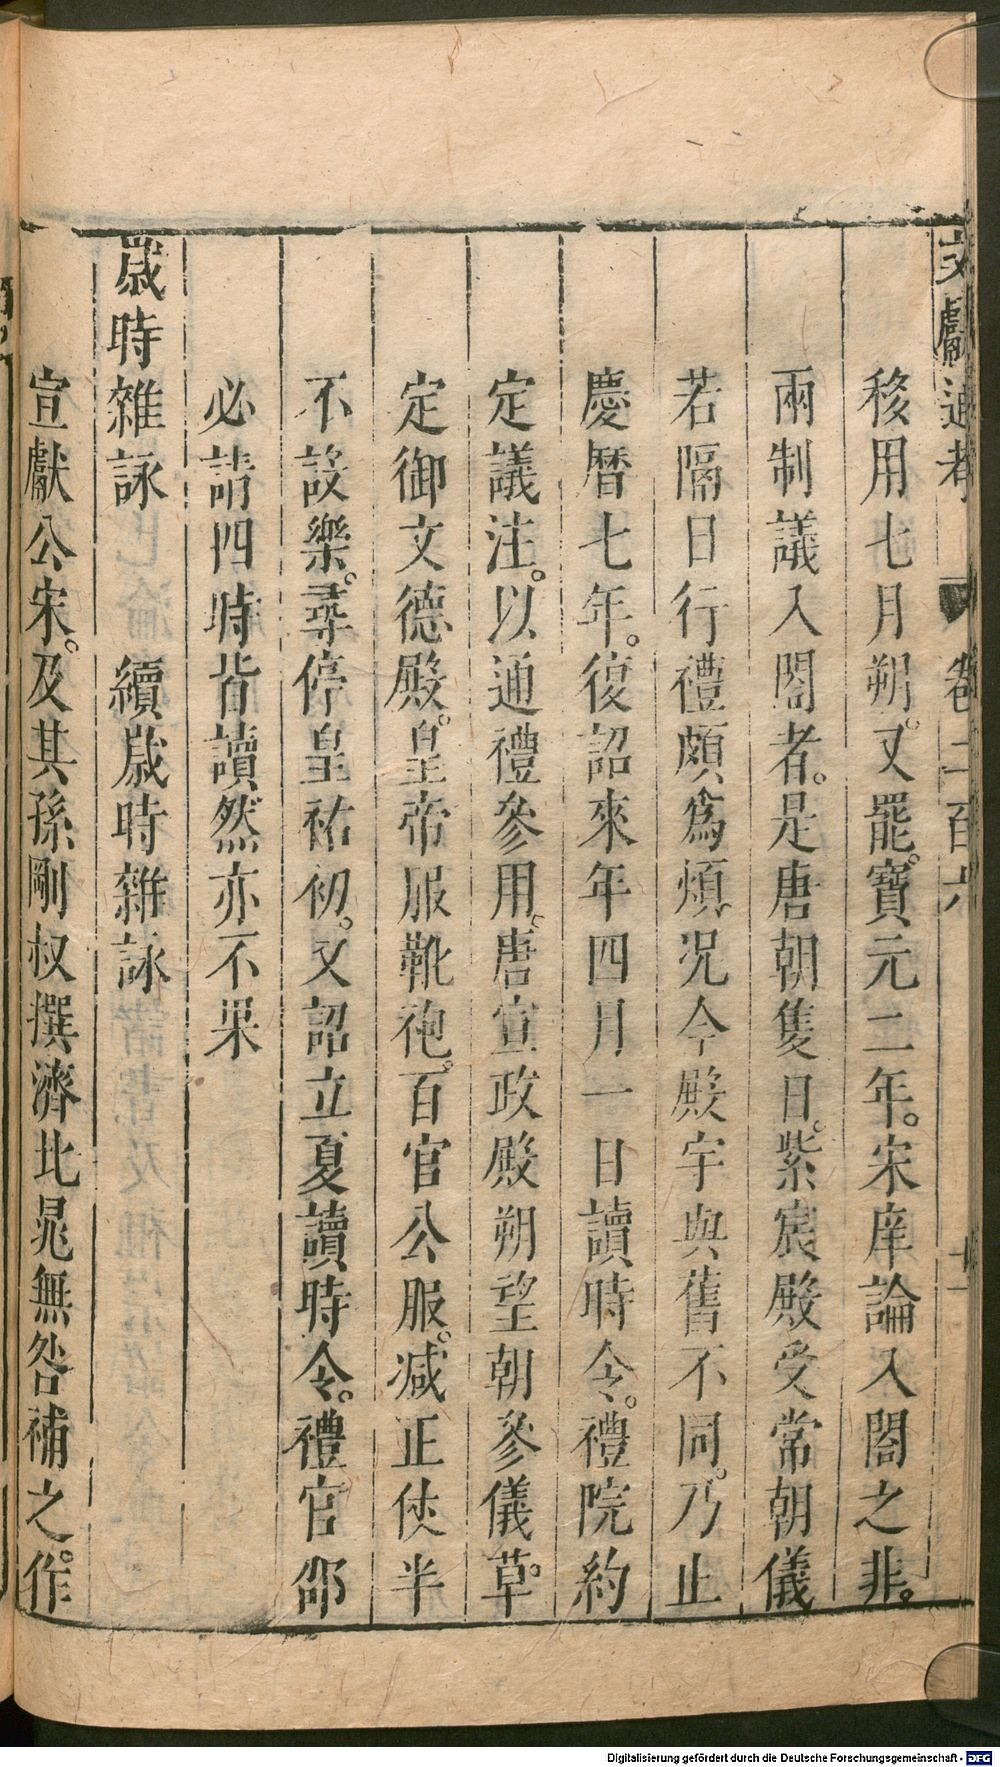 文獻通考 卷二百六 十一
移用七月朔。又罷。寶元二年。宋庠論入閤之非。
兩制議入閤者。是唐朝隻日。紫宸殿受常朝儀
若隔日行禮頗爲煩。况今殿宇與舊不同。乃止
慶曆七年。復詔來年四月一日讀時令。禮院約
定議注。以通禮參用。唐宣政殿朔望朝參儀草。
定御文德殿。皇帝服靴袍。百官公服。减正仗半
不設樂。尋停皇祐初。又詔立夏讀時令。禮官邵
必請四時皆讀然亦不果
歲時雜詠 續歲時雜詠
宣獻公宋。及其孫剛叔撰濟北晁無咎補之。作
Digitalisierung gefördert durch die Deutsche Forschungsgemeinschaft - DFG